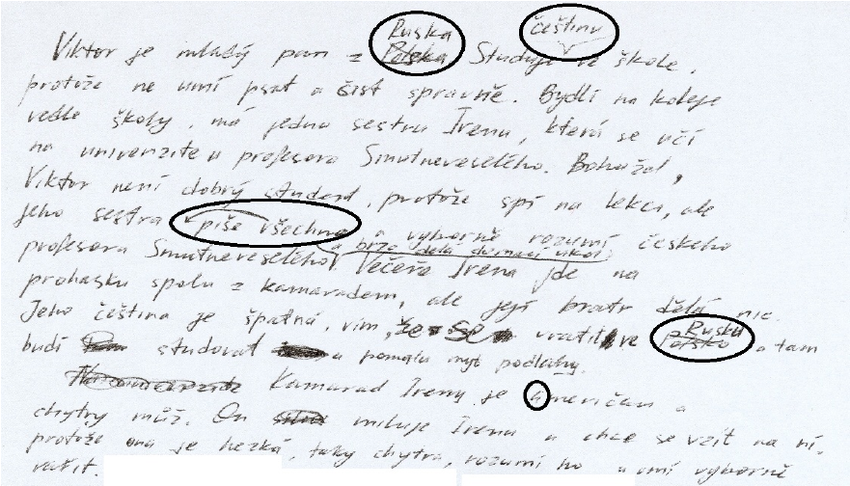 Ruska češtinu
Viktor je mladý pan z Polska Studuje ve škole,
protože ne umí psat a čist spravně. Bydlí na koleje
vedle školy, má jednu sestru Irenu, která se učí
na univerzite u profesora Smutneveselého. Bohužal,
Viktor není dobrý student, protože spí na lekci, ale
jeho sestra piše všechno a vyborně rozumí českeho
a brzo dělá domací ukol
profesora Smutneveselého. Večeře Irena jde na
prohasku spolu z kamaradem, ale její bratr dělá nic.
Jeho čeština je špatná, vim, že se vratil ve Rusku
Polsko a tam
budí studovat a pomalu myt podlahy.
Kamarad Ireny je američan a
chytry můž. On miluje Irenu a chce se vzít na ní,
protože ona je hezká, taky chytra, rozumí ho a umí vyborně
vařit.